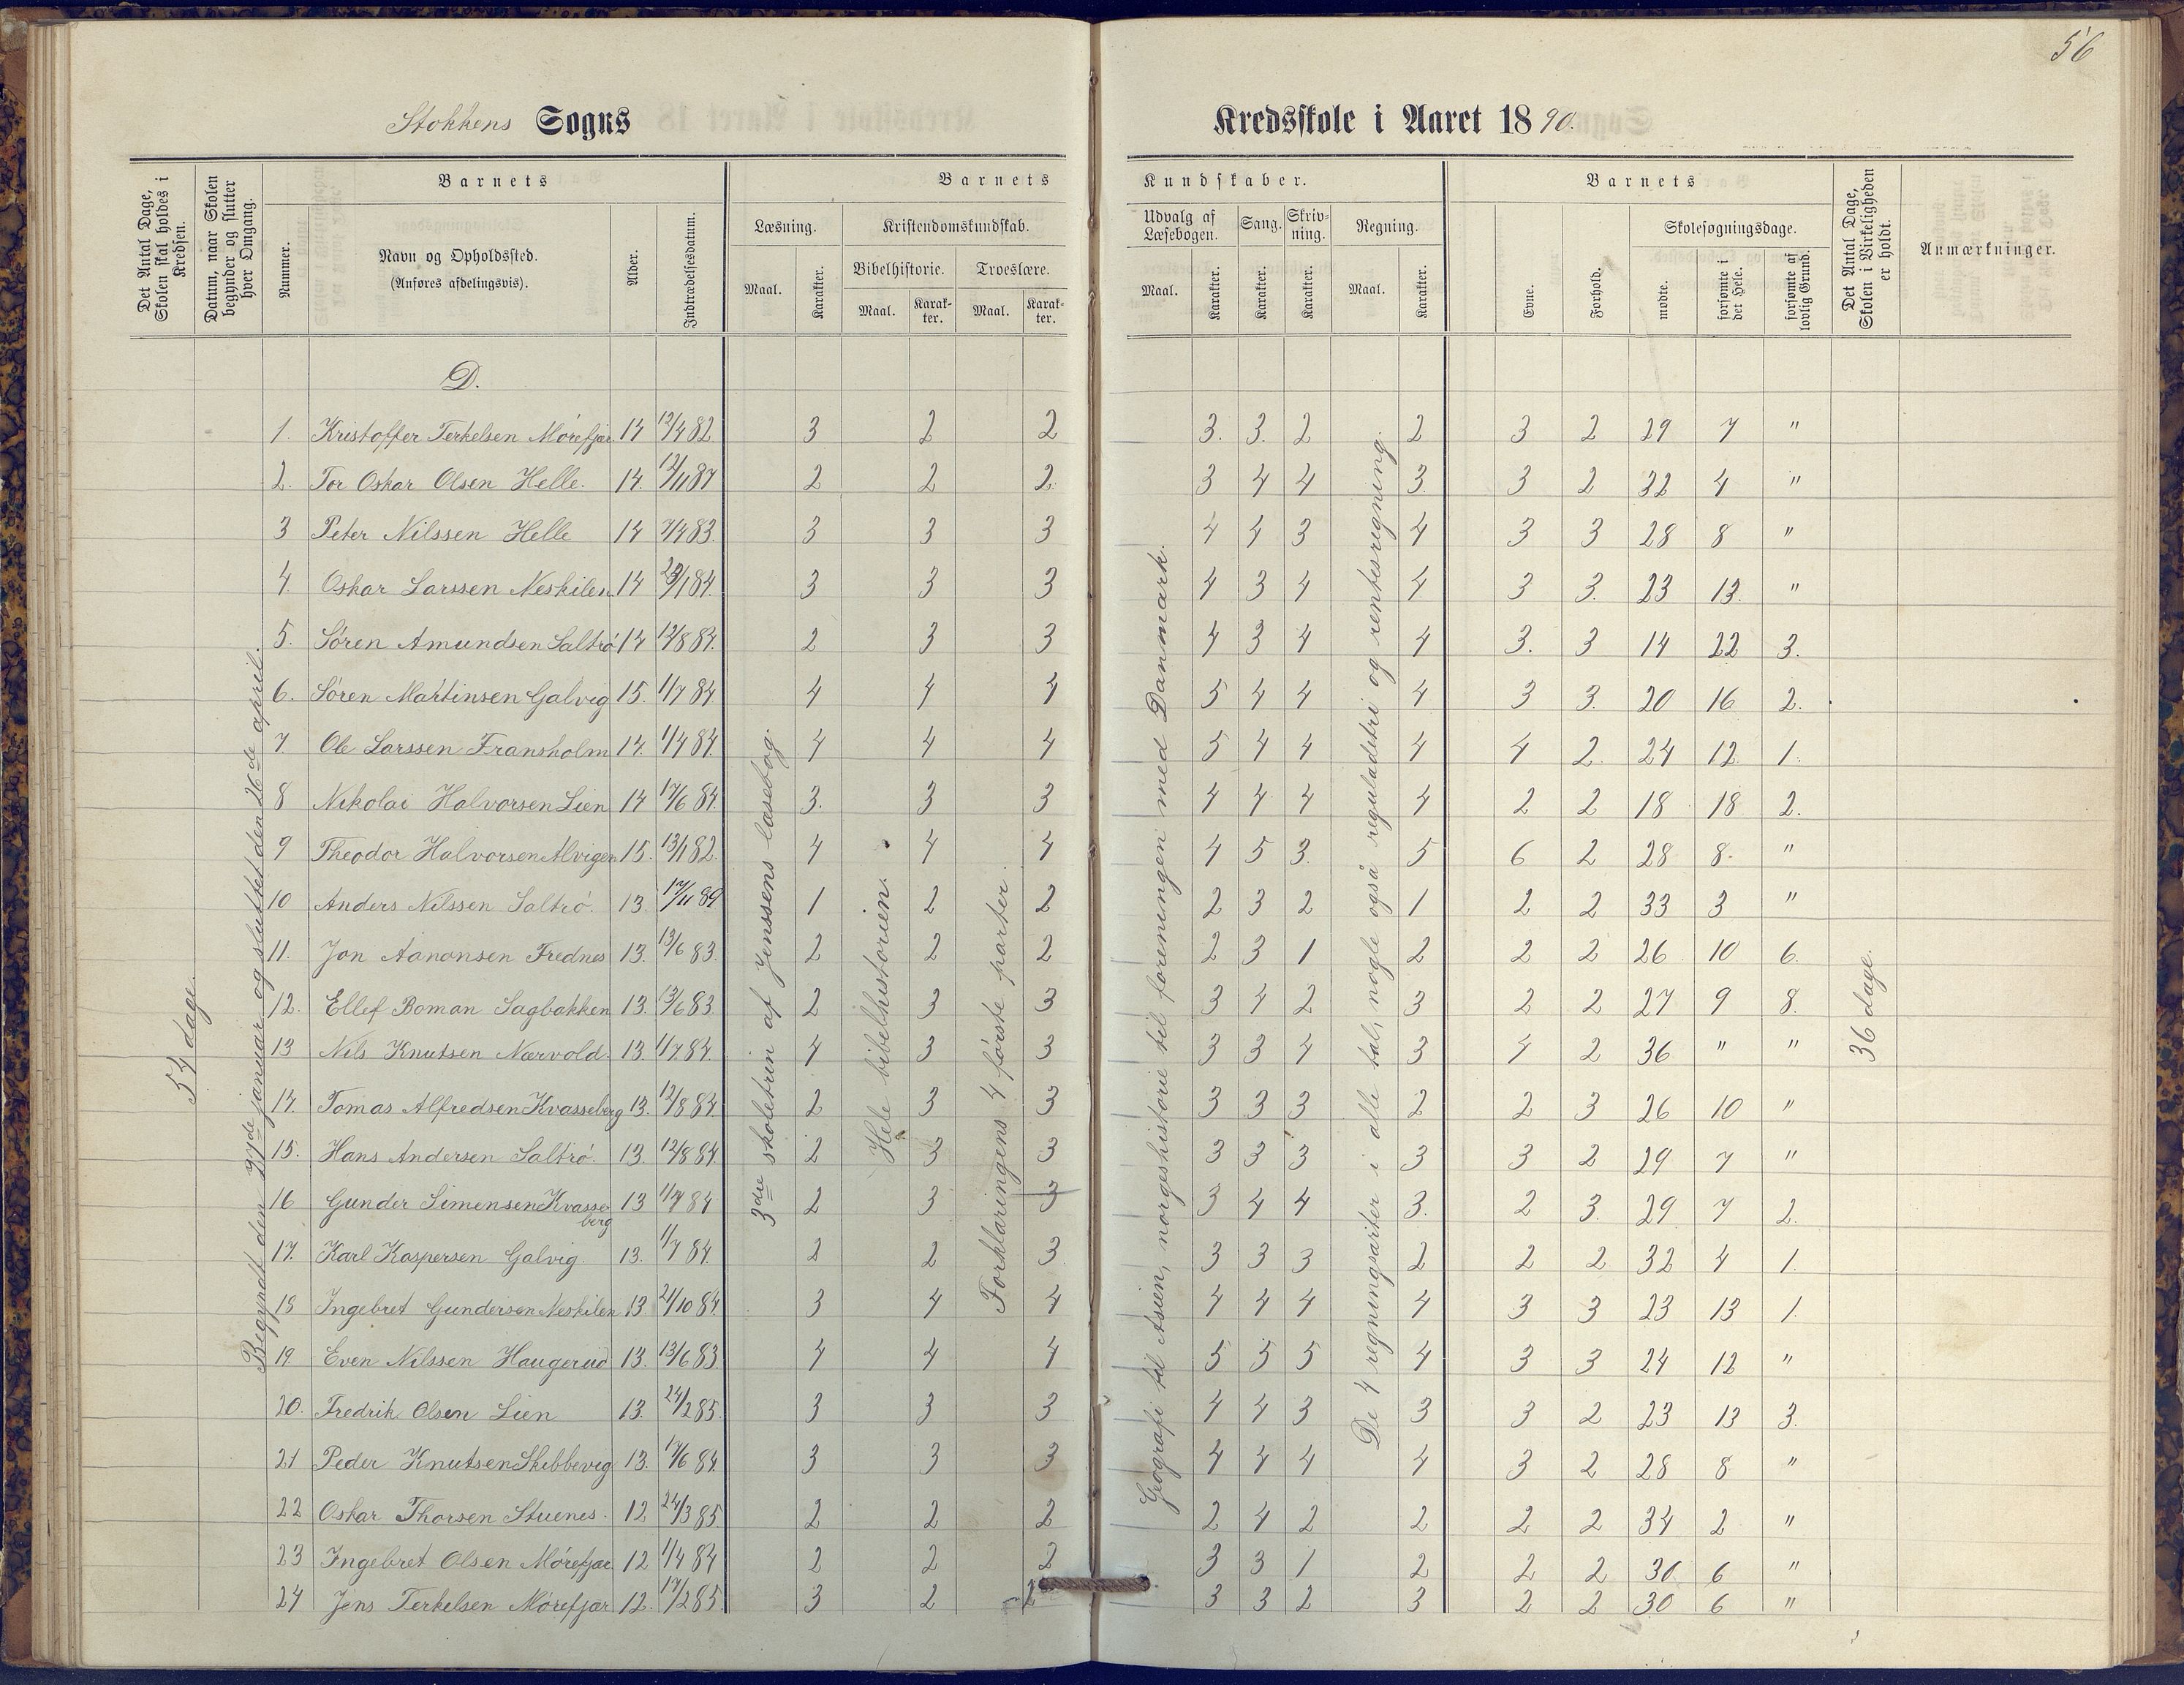 56
Stokkens Sogns Kredsskole i Aaret 1890.
Det Antal Dage, Skolen skal holdes i Kredsen.
Datum, naar Skolen begynder og slutter hver Omgang.
Nummer.
Barnets
Navn og Opholdssted.
(Anføres afdelingsvis).
Alder.
Indtrædelsesdatum.
Barnets Kundskaber.
Læsning.
Maal.
Karakter.
Kristendomskundskab.
Bibelhistorie.
Maal.
Karakter.
Troeslære.
Maal.
Karakter.
Udvalg af Læsebogen.
Maal.
Karakter.
Sang.
Karakter.
Skrivning.
Karakter.
Regning.
Maal.
Karakter.
Barnets
Evne.
Forhold.
Skolesøgningsdage.
mødte.
forsømte i det Hele.
forsømte af lovlig Grund.
Det Antal Dage, Skolen i Virkeligheden er holdt.
Anmærkninger.
D.
54 dage.
januar og sluttet den 26de april.
3die skoletrin af Jenssens læsebog.
Hele bibelhistorien.
Forklaringens 4 første parter.
Geografi til Asien, norgeshistorie til foreningen med Danmark.
De 4 regningsarter i alle tal, nogle også reguladetri og rentesregning.
36 dage.
1. Kristoffer Terkelsen Mørefjær 14 12/4 82 3 2 2 3. 3. 2 2 3 2 29 7 "
2. Tor Oskar Olsen Helle. 14. 2 2 2. 3 4 4 3. 3 2 32 4 "
3 Peter Nilssen Helle 14 3 3 3 4 4 3 4 3 3 28 8 "
4. Oskar Larssen Neskilen 14 3 3 3 4 3 4 4 3 3. 23 13. "
5. Søren Amundsen Saltrø 14 12/8 84. 2 3 3 4 3 4 4 3. 3 14 22 3.
6. Søren Martinsen Galvig 15. 1/7 84. 4 4 4 5 4 4 4 3 3. 20 16 2.
7. Ole Larssen Fransholm 14. 1/4 84. 4 4 4 5 4 4 4 4 2. 24 12 1.
8 Nikolai Halvorsen Lien 14 17/6 84. 3. 3 3 4 4 4 4 2 2 18 18 2.
9 Theodor Halvorsen Alvigen 15. 13/1 82. 4 4 4 4 5 3. 5 6 2 28 8. "
10 Anders Nilssen Saltrø. 13. 17/11 89 1 2 2 2 3 2 1 2 2 33 3 "
11. Jon Aanonsen Frednes 13. 13/6 83. 2 2 2 2 3 1 2 2 2 26 10 6.
12. Ellef Boman Sagbakken 13. 13/6 83. 2 3 3 3 4 2 3 2 2 27 9 8.
13 Nils Knutsen Nærvold. 13. 1/7 84. 4 3 3 3 3 4 3 4 2 36 " "
14. Tomas Alfredsen Kvasseberg 13. 12/8 84 2 3 3 3 3 3 2 2 3 26 10 "
15. Hans Andersen Saltrø. 13. 12/8 84. 2 3 3 3 3 3 3 3 2 29 7 "
16 Gunder Simensen Kvasseberg 13 1/7 84 2 3 3 3 4 4 3. 2 3. 29 7 2.
17. Karl Kaspersen Galvig. 13. 1/7 84. 2 2 3 3 3 3 2 2 2 32 4 1.
18 Ingebret Gundersen Neskilen 13 21/10 84 3 4 4 4 4 4 4 3 3 23 13 1.
19. Even Nilssen Haugerud 13. 13/6 83 4 4 4 5 5 5 4 3 3 24 12 "
20. Fredrik Olsen Lien 13. 24/2 85. 3 3 3 4 4 3 3 3 2 23 13 3.
21 Peder Knutsen Skibbevig 13. 17/6 84. 3 3 3 4 4 4 4 3 2 28 8 "
22 Oskar Thorsen Stuenes. 12 24/3 85 2 2 2 2 4 2 2 2 2 34 2 "
23 Ingebret Olsen Mørefjær 12 1/4 84 2 2 2 3 3 1 2 2 2 30 6 "
24 Jens Terkelsen Mørefjær 12. 17/2 85 3 2 2 3 3 2 3 2 2 30 6 "